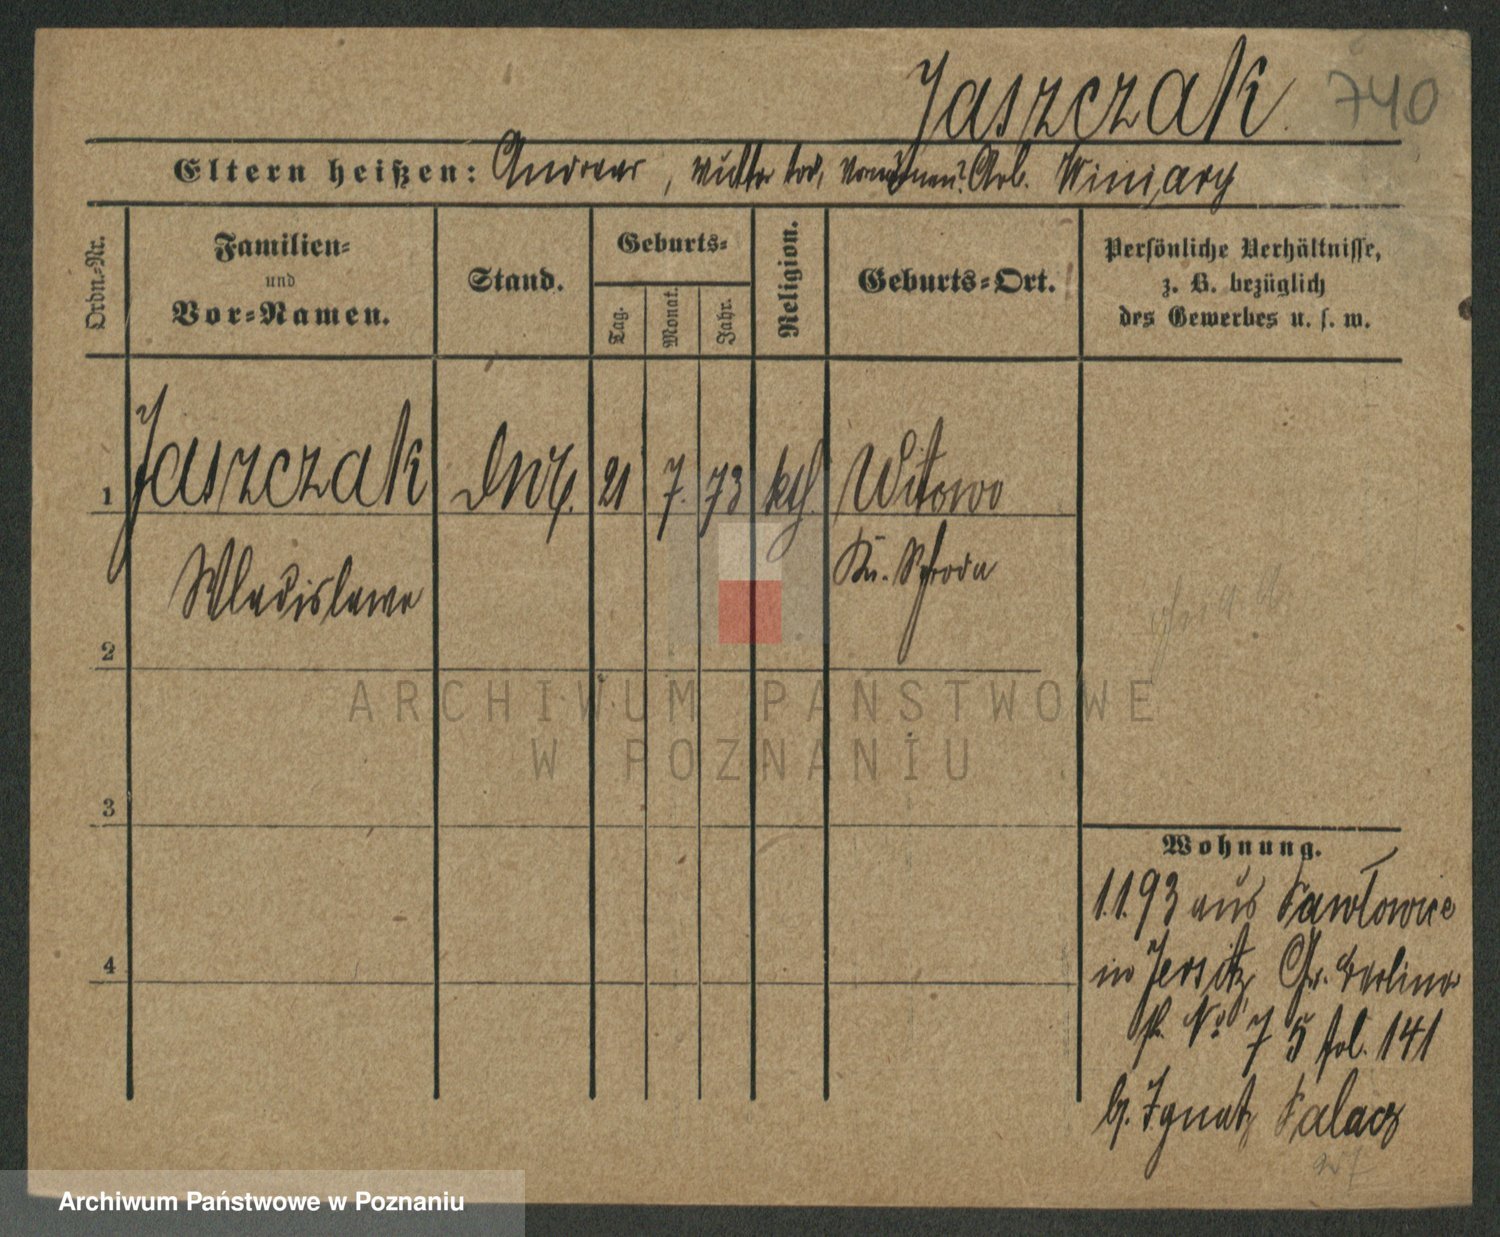 Jaszczak 740
Eltern heißen: Andreas, Mutter tod, Arb. Winiary
Ordn.-Nr.
Familien-
und
Vor-Namen.
Stand.
Geburts-
Tag.
Monat.
Jahr.
Religion.
Geburts-Ort.
Persönliche Verhältnisse,
z. B. bezüglich
des Gewerbes u. s. w.
1 Jaszczak 21 7. 73 kth. Witowo
Wladislawa Schroda
2
3
4
ARCHIWUM PAŃSTWOWE
W POZNANIU
Wohnung.
1.1.93 aus Pawłowice
in Jersitz Gr. Berliner
No 75 fol. 141
b. Ignatz Palacz
Archiwum Państwowe w Poznaniu